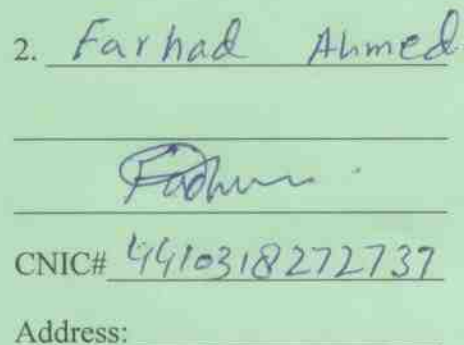 2. Farhad Ahmed
CNIC# 4410318272737
Address: